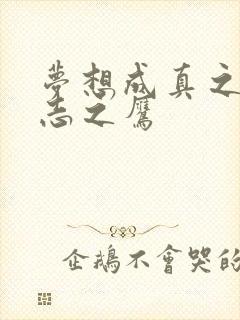 夢想成真之
志之鷹
企鵝不會哭的